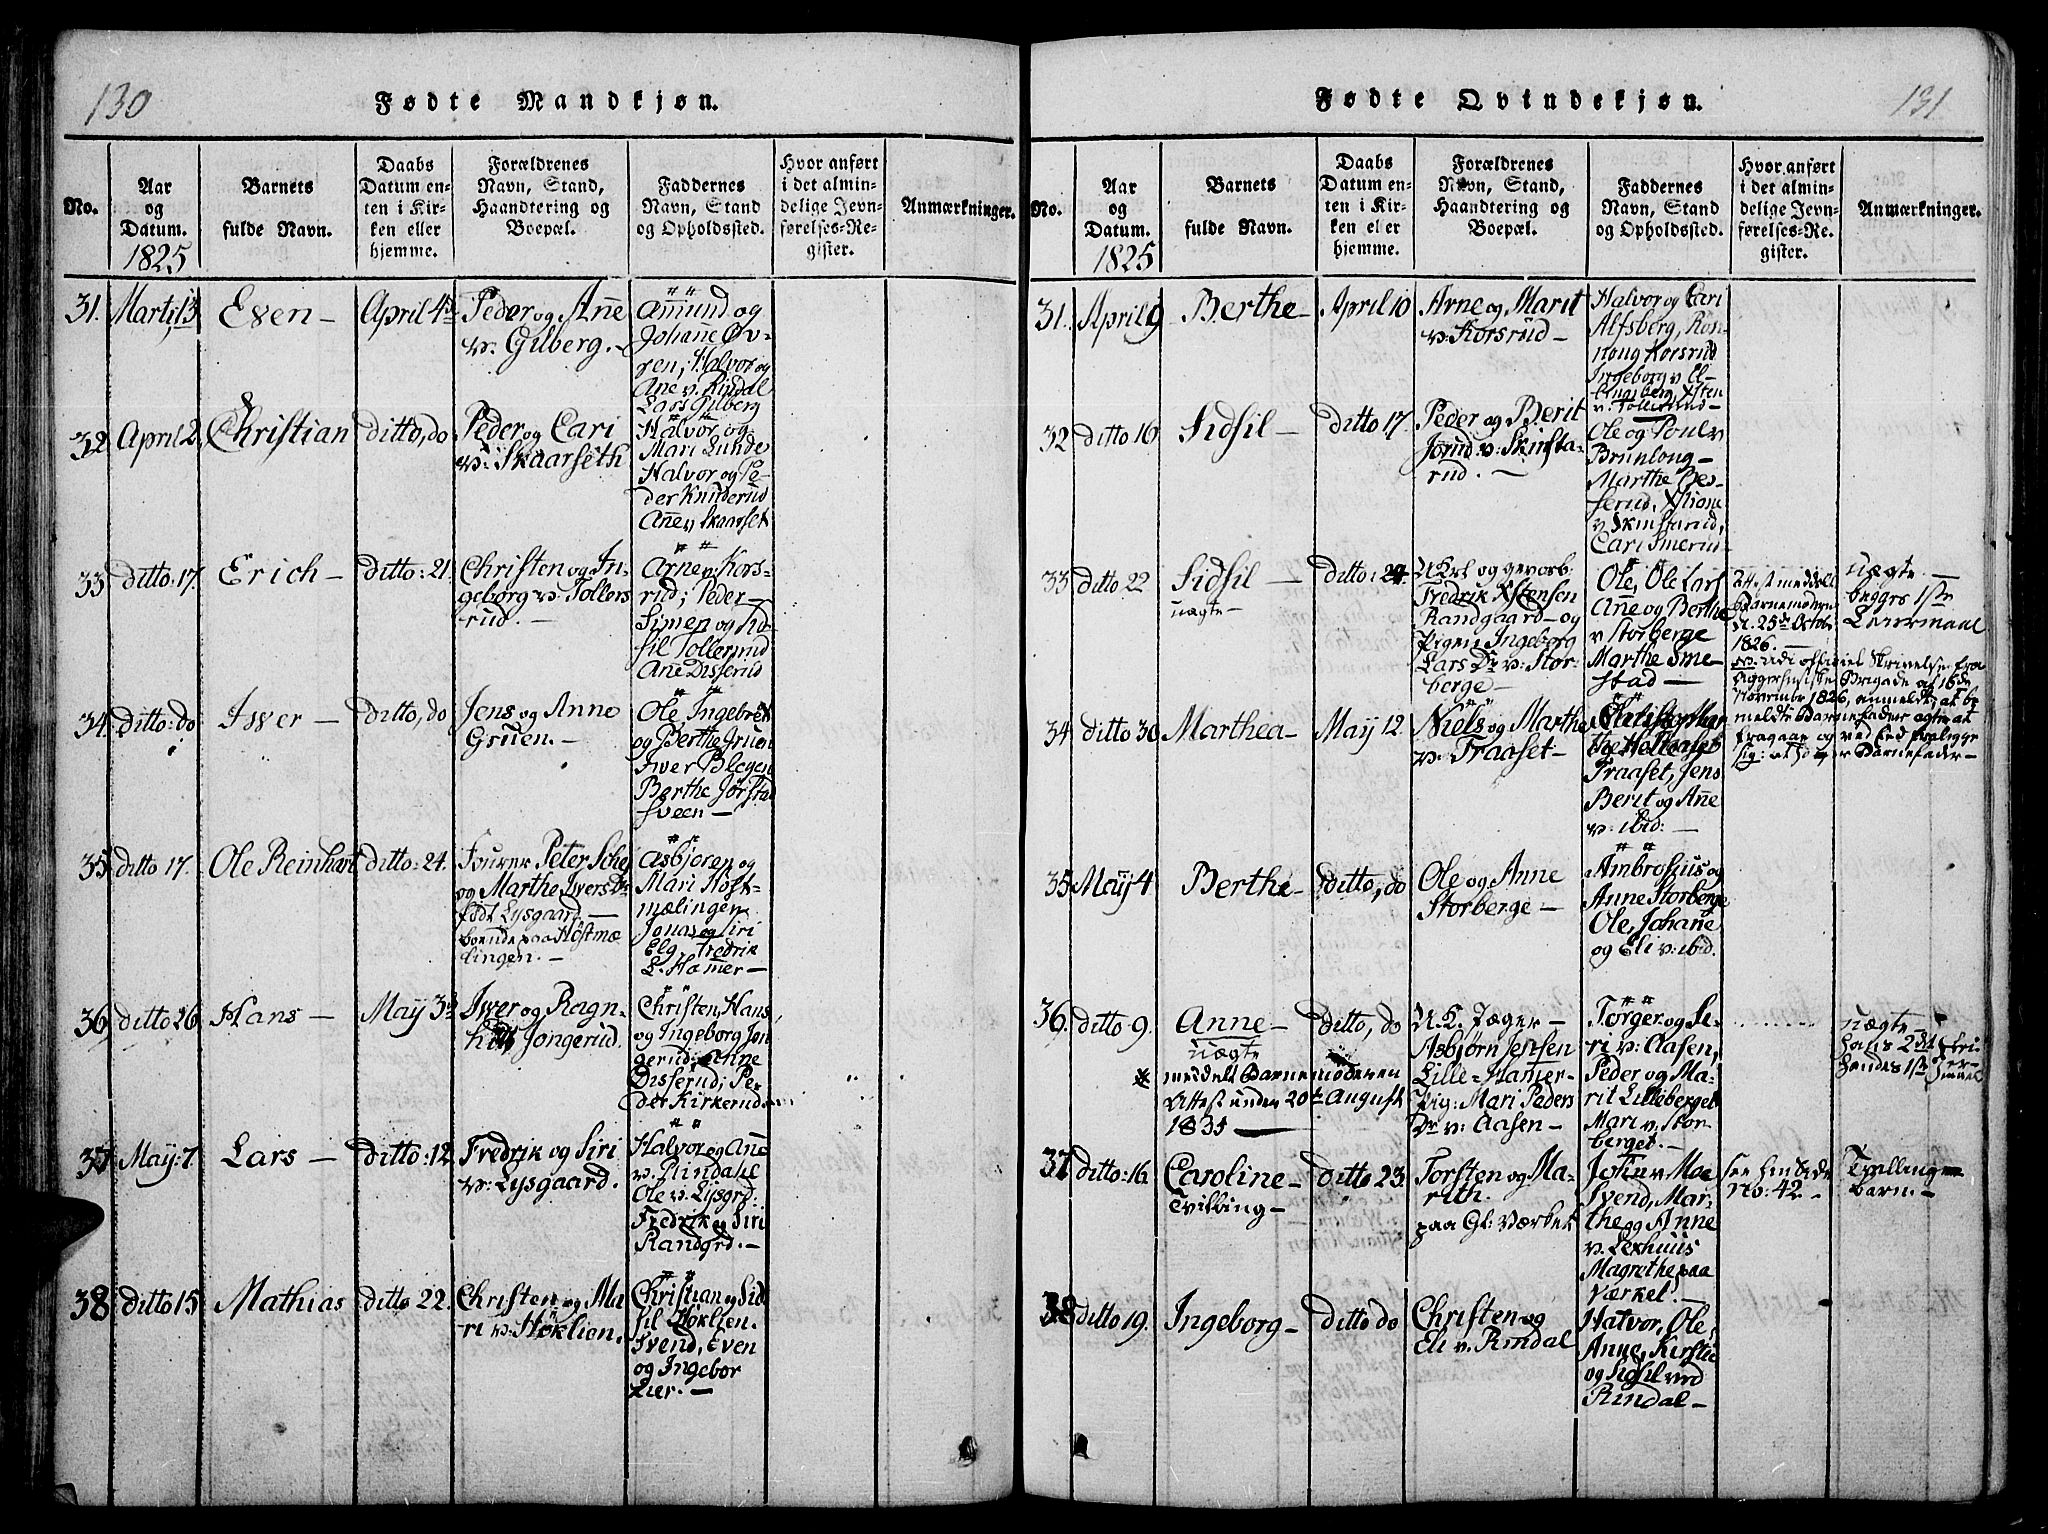 130
Fødte Mandkjøn.
No.
Aar
og
Datum.
1825
Barnets
fulde Navn.
Daabs
Datum en-
ten i Kir-
ken eller
hjemme.
Forældrenes
Navn, Stand,
Haandtering og
Boepæl.
Faddernes
Navn, Stand
og Opholdssted.
Hvor anført
i det almin-
delige Jevn-
førelses-Re-
gister.
Anmærkninger.
31. Martj 13
Even –
April 4de
Peder og Anne
v. Gilberg. –
Amund og
Johanne Øv-
ren, Halvor og
Ane v. Rindal
Lars Gilberg
32. April 2.
Christian
ditto, do
Peder og Cari
v: Skaarseth
Halvor og
Mari Lunde
Halvor og Pe-
der Knuderud
Ane v Skaarset
33 ditto: 17.
Erich –
ditto: 21.
Christen og In-
geborg v. Tollers
rud. –
Arne v. Kors-
rud; Peder –
Simen og Sid-
sil Tollersrud
Ane Disserud
34. ditto: do
Iwer –
ditto, do
Jens og Anne
Gruen. –
Ole, Ingebret
og Berthe Gruen
Iwer Blegen
Berthe Jørstad
sveen –
35 ditto 17.
Ole Reinhart
ditto: 24.
Fourer Peter Schej
og Marthe Iversdr
født Lysgaard, –
boende paa Höstmæ
lingen. –
Asbjøren og
Mari Höst-
mælingen
Jonas og Siri
Elg, Fredrik
L. Hamer –
36 ditto 26
Hans –
May 3de
Iwer og Ragn-
hild Jongerud.
Christen, Hans
og Ingeborg Jon
gerud; Anne
Disserud; Pe-
der Kirkerud
37 May: 7.
Lars –
ditto: 12.
Fredrik og Siri
v: Lysgaard.
Halvor og Ane
v. Rindahl
Ole v: Lysgrd.
Fredrik og Siri
Randgrd. –
38 ditto 15
Mathias
ditto 22.
Christen og Ma
ri v: Höklien.
Christian og Sid
sil Höklien.
Svend, Even
og Ingebor
Lier. –
Fødte Qvindekjøn.
131
No.
Aar
og
Datum.
1825
Barnets
fulde Navn.
Daabs
Datum en-
ten i Kir-
ken eller
hjemme.
Forældrenes
Navn, Stand,
Haandtering og
Boepæl.
Faddernes
Navn, Stand
og Opholdssted.
Hvor anført
i det almin-
delige Jevn-
førelses-Re-
gister.
Anmærkninger.
31. April 9
Berthe –
April 10
Arne og Marit
v: Korsrud –
Halvor og Cari
Alfsberg, Rön-
noug Korsrud
Ingeborg v El-
v: Tollersrud –
32 ditto 16.
Sidsil –
ditto 17.
Peder og Berit
Jorud v: Skinsta-
rud. –
Ole og Poul v
Brunlong –
Marthe Bes-
serud,
v Skinstarud,
Cari Smerud –
33 ditto 22
Sidsil –
uægte –
ditto: 24.
Fredrik Xstensen
Randgaard – og
Pigen Ingeborg
Lars Dr v: Stor-
berge –
Ole, Ole Lars
Ane og Berthe
v Storberge
Marthe Sme-
stad –
Barnemoderen
1826. –
Brigade af 16de
November 1826, anmeldt, at be
meldte Barnefader agter at
fragaae og ved Eed fralegge
sig: at han er Barnefader –
uægte –
begges 1ste
Leiermaal
34 ditto 30
Marthea –
May 12.
Niels og Marthe
v: Traaset –
Traaset, Jens
Berit og Ane
v: ibid: –
35 Maij 4
Berthe –
ditto, do
Ole og Anne
Storberge –
Ambrosius og
Anne Storberge
Ole, Johane
og Eli v: ibid.
36. ditto 9.
Anne –
uægte
meddelt Barnemoderen
Attest under 20de August
1835 –
ditto, do
U.K. Jæger –
Asbjørn Jensen
Lille-Hamer –
Pig: Mari Peders
Dr v: Aasen –
Törger og Se-
ri v: Aasen,
Peder og Ma-
rit Lilleberget
Mari v: Stor
berget. –
uægte –
hans 2det
hendes 1ste
37 ditto: 16.
Caroline –
Tvilling –
ditto 23.
Torsten og Ma-
rith.
paa Gl: Værket
John v. Moe
Svend, Mar-
the og Anne
v. Lexhuus
Magrethe paa
Værket. –
see hin Side
no: 42 –
Tvillinge
barn. –
38 ditto 19.
Ingeborg –
ditto do
Christen og
Eli v. Rindal
Halvor, Ole,
Anne, Kirstie
og Sidsil ved
Rindal –